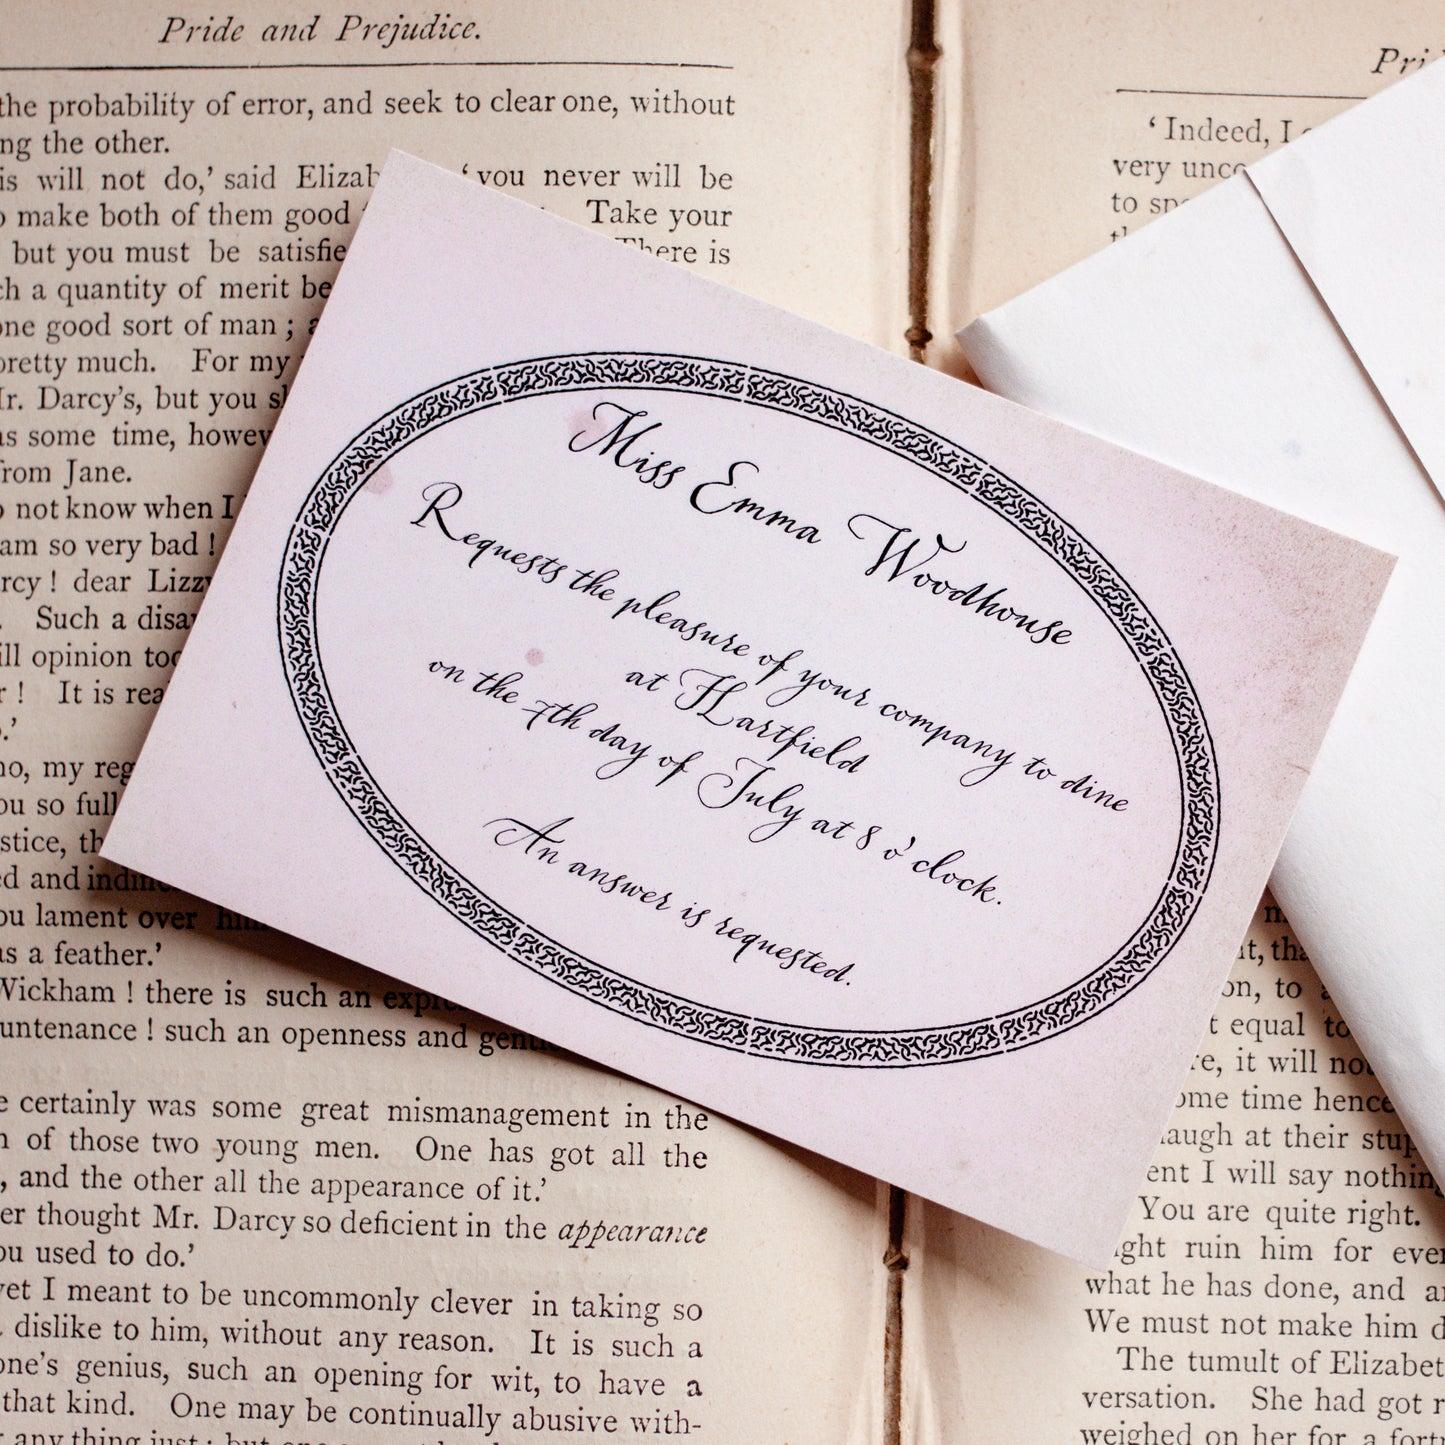 Pride and Prejudice.
the probability of error, and seek to clear one, without
the other.
will not do,' said
'you never will be
make both of them good
Take your
but you must be
There is
a quantity of merit
good sort of man ;
pretty much. For my
Darcy's, but you
some time,
from Jane.
not know when I
am so very bad !
! dear Lizzy
Such a
opinion
! It is
my
so
the
and
lament over him
a feather.'
Wickham ! there is such an
! such an openness and
certainly was some great mismanagement in the
of those two young men. One has got all the
and the other all the appearance of it.'
thought Mr. Darcy so deficient in the appearance
used to do.'
I meant to be uncommonly clever in taking so
dislike to him, without any reason. It is such a
one's genius, such an opening for wit, to have a
that kind. One may be continually abusive with-
Miss Emma Woodhouse
Requests the pleasure of your company to dine
at Hartfield
on the 7th day of July at 8 o'clock.
An answer is requested.
'Indeed, I
very
to
to
equal to
it will
time hence
laugh at their
I will say
You are quite right.
ruin him for
what he has done, and
We must not make him
The tumult of
She had got
weighed on her for a